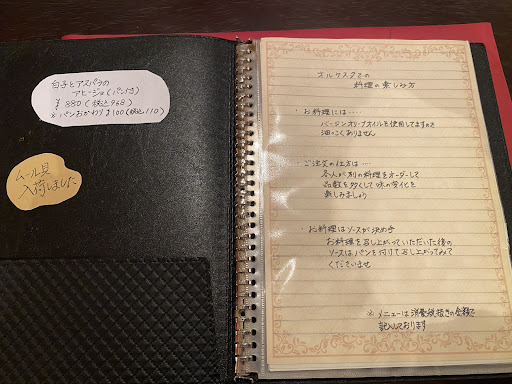 白子とアスパラの
アヒージョ(パン付)
¥880(税込968)
※パンおかわり¥100(税込110)
ムール貝
入荷しました
オルケスタでの
料理の楽しみ方
・お料理には‥‥
バージンオリーブオイルを使用してますので
油っこくありません
・ご注文の仕方は‥‥
各人が別の料理をオーダーして
品数を多くして味の変化を
楽しみましょう
・お料理はソースが決め手
お料理を召し上がっていただいた後の
ソースはパンを付けて召し上がってみて
くださいませ
※メニューは消費税抜きの金額で
記入しております